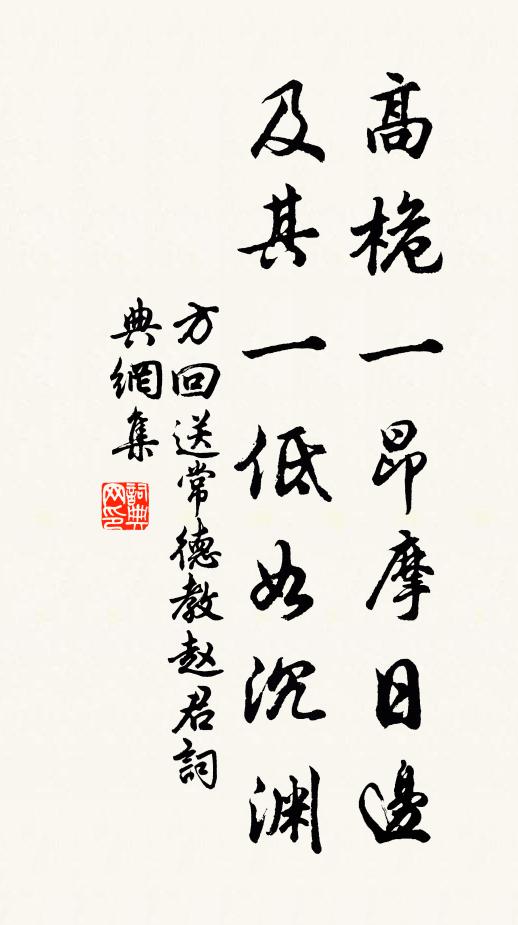 高桅一昂摩日邊
及其一低如沉渊
方回送常德教赵君詞
典網集
詞典网印